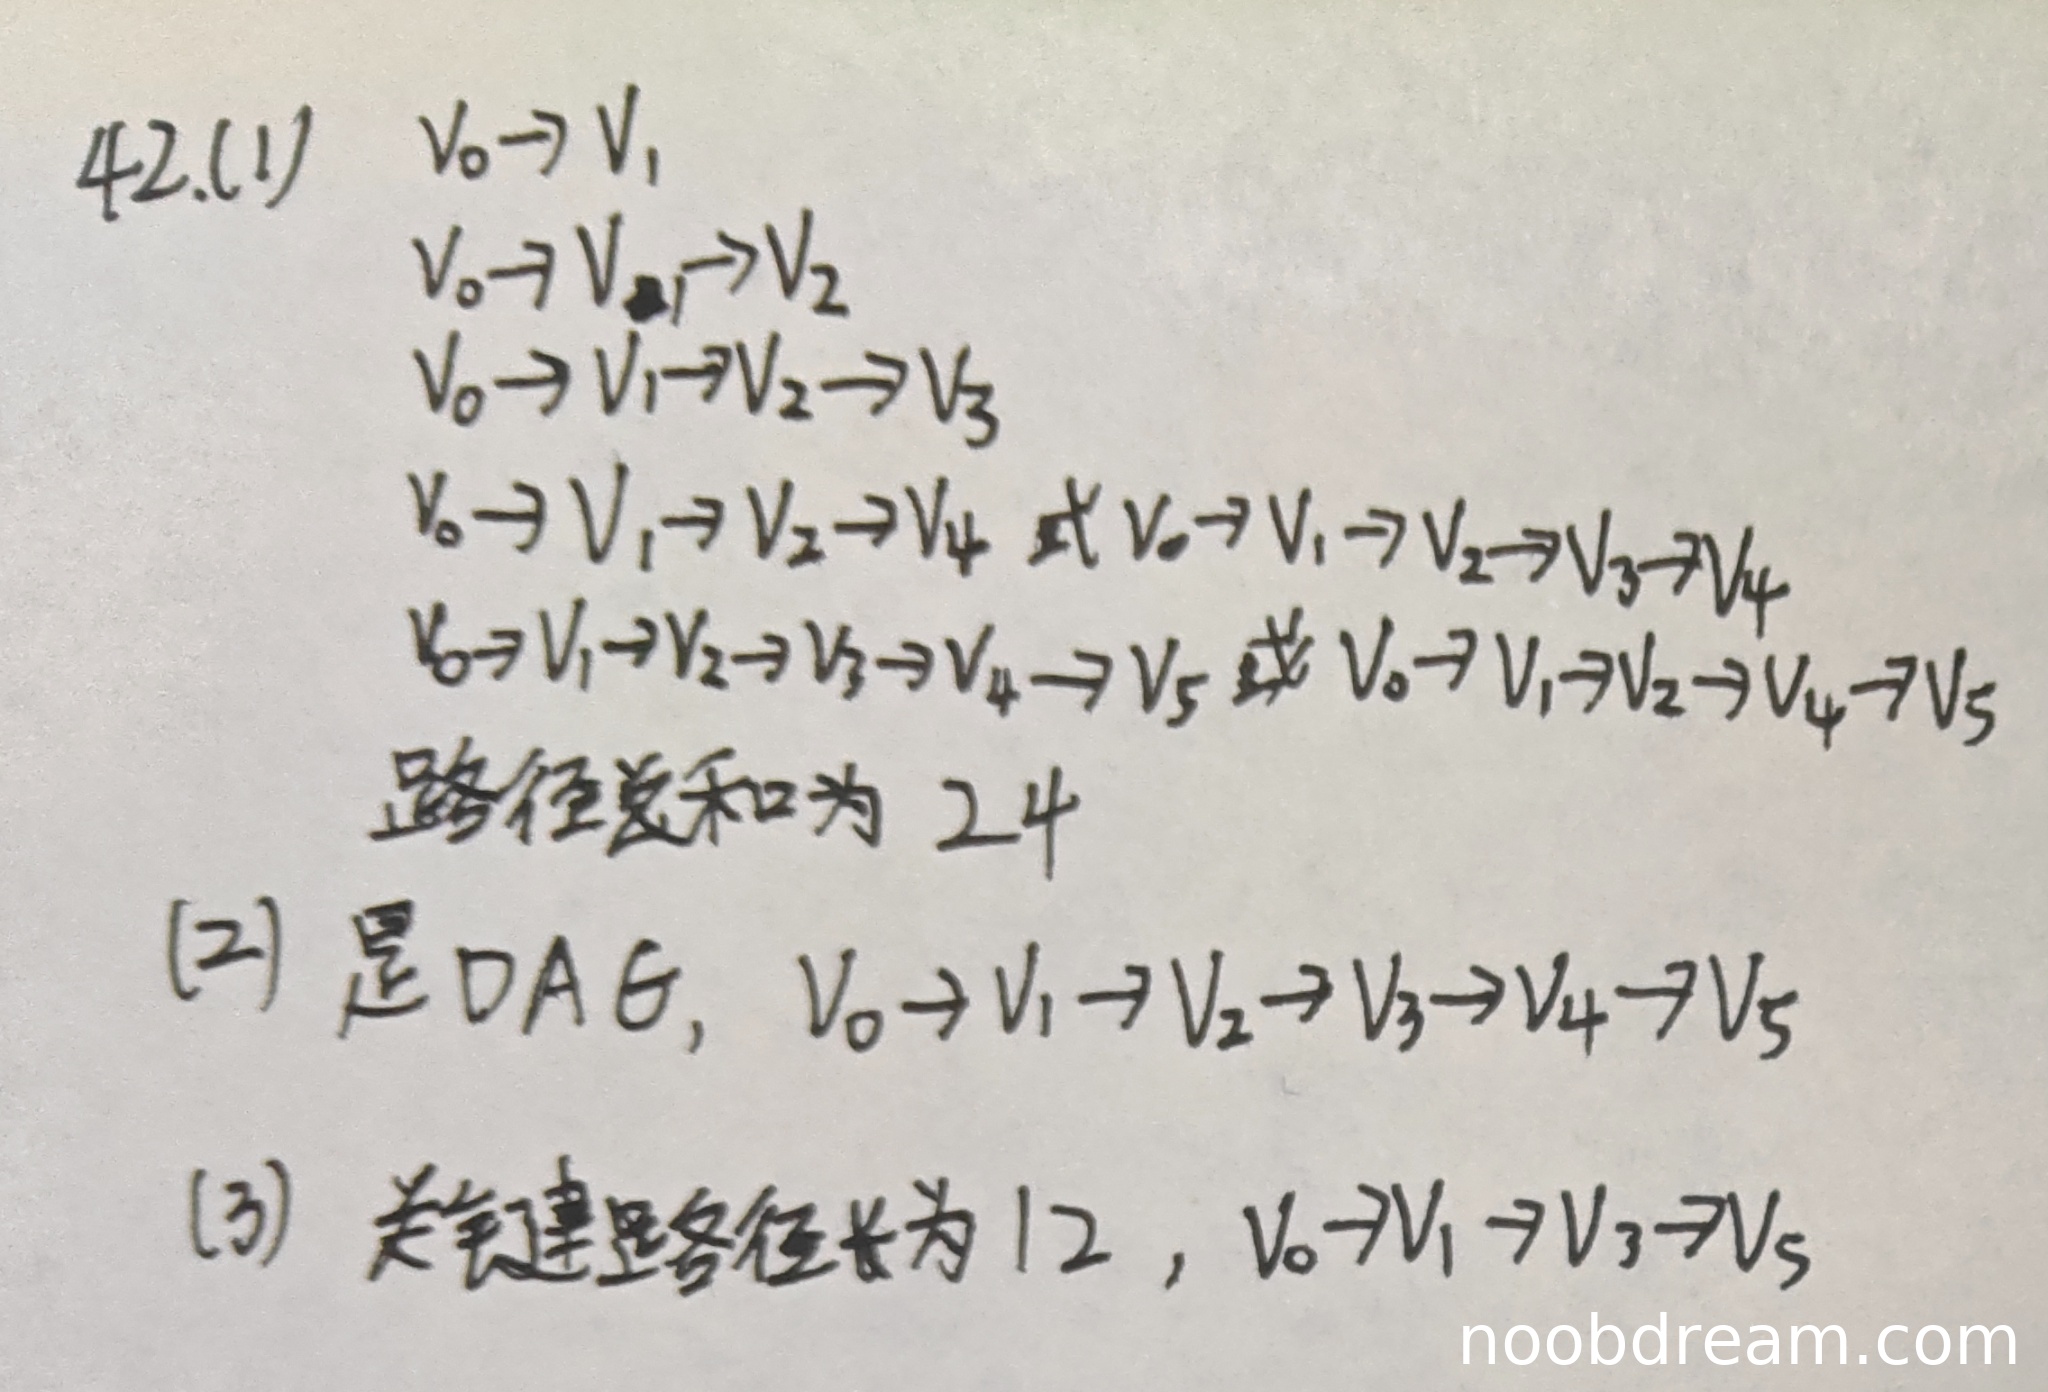 42.(1) V₀→V₁
V₀→V₁→V₂
V₀→V₁→V₂→V₃
V₀→V₁→V₂→V₄ 或 V₀→V₁→V₂→V₃→V₄
V₀→V₁→V₂→V₃→V₄→V₅ 或 V₀→V₁→V₂→V₄→V₅
路径总和为 24
(2) 是DAG, V₀→V₁→V₂→V₃→V₄→V₅
(3) 关键路径长为12, V₀→V₁→V₃→V₅
noobdream.com